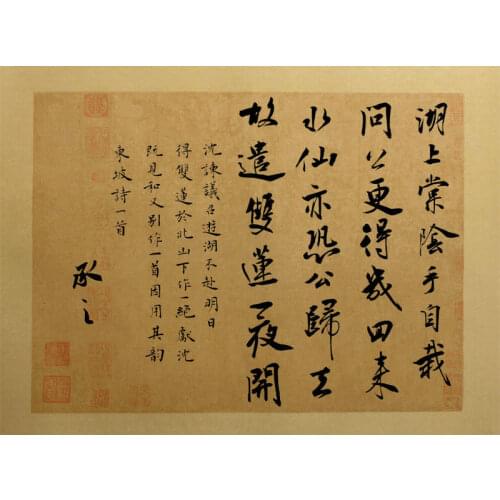 湖上棠陰手自栽
問公更得幾回來
水仙亦恐公歸去
故遣雙蓮一夜開
沈諫議召遊湖不赴明日
得雙蓮於北山下作一絕獻沈
既見和又別作一首因用其韻
東坡詩一首
承之